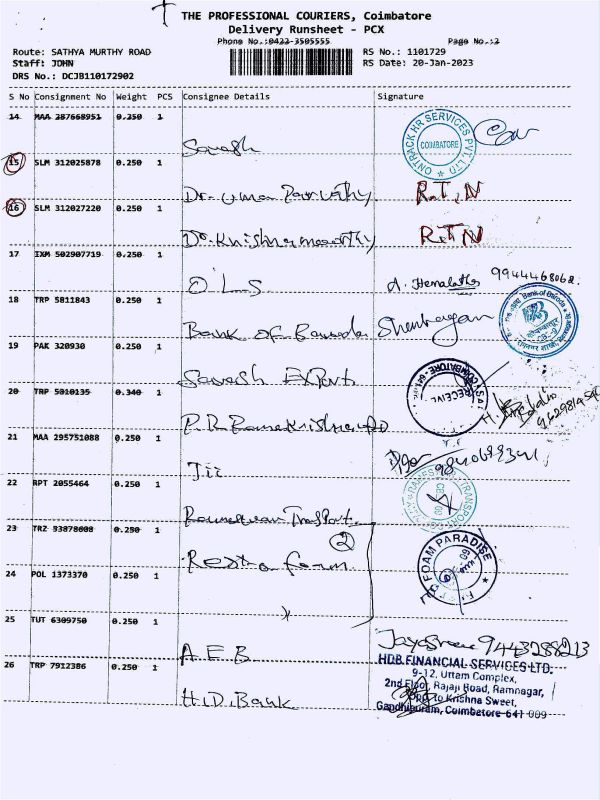 THE PROFESSIONAL COURIERS, Coimbatore
Delivery Runsheet - PCX
Phone No.:0422-3505555 Page No.:2
Route: SATHYA MURTHY ROAD RS No.: 1101729
Staff: JOHN RS Date: 20-Jan-2023
DRS No.: DCJB110172902
S No Consignment No Weight PCS Consignee Details Signature
14 MAA 287668951 0.250 1
COIMBATORE
15 SLM 312025878 0.250 1
Dr. Uma Parvathy R.T.N
16 SLM 312027220 0.250 1
Dr. Krishnamoorthy R.T.N
17 IXM 502907719 0.250 1
OLS A. Hemalatha 9944468068
18 TRP 5811843 0.250 1
Bank of Baroda
19 PAK 320930 0.250 1
Export
20 TRP 5010135 0.340 1
21 MAA 295751088 0.250 1
22 RPT 2055464 0.250 1
Rameswaram Transport
23 TRZ 53878088 0.250 1
2
FOAM PARADISE
24 POL 1373370 0.250 1
25 TUT 6309750 0.250 1
AEB Jayasree 9443288213
26 TRP 7912386 0.250 1
H.D. Bank
HDB FINANCIAL SERVICES LTD.
9-12, Uttam Complex,
2nd Floor, Rajaji Road, Ramnagar,
Opp. to Krishna Sweet,
Gandhipuram, Coimbatore-641 009